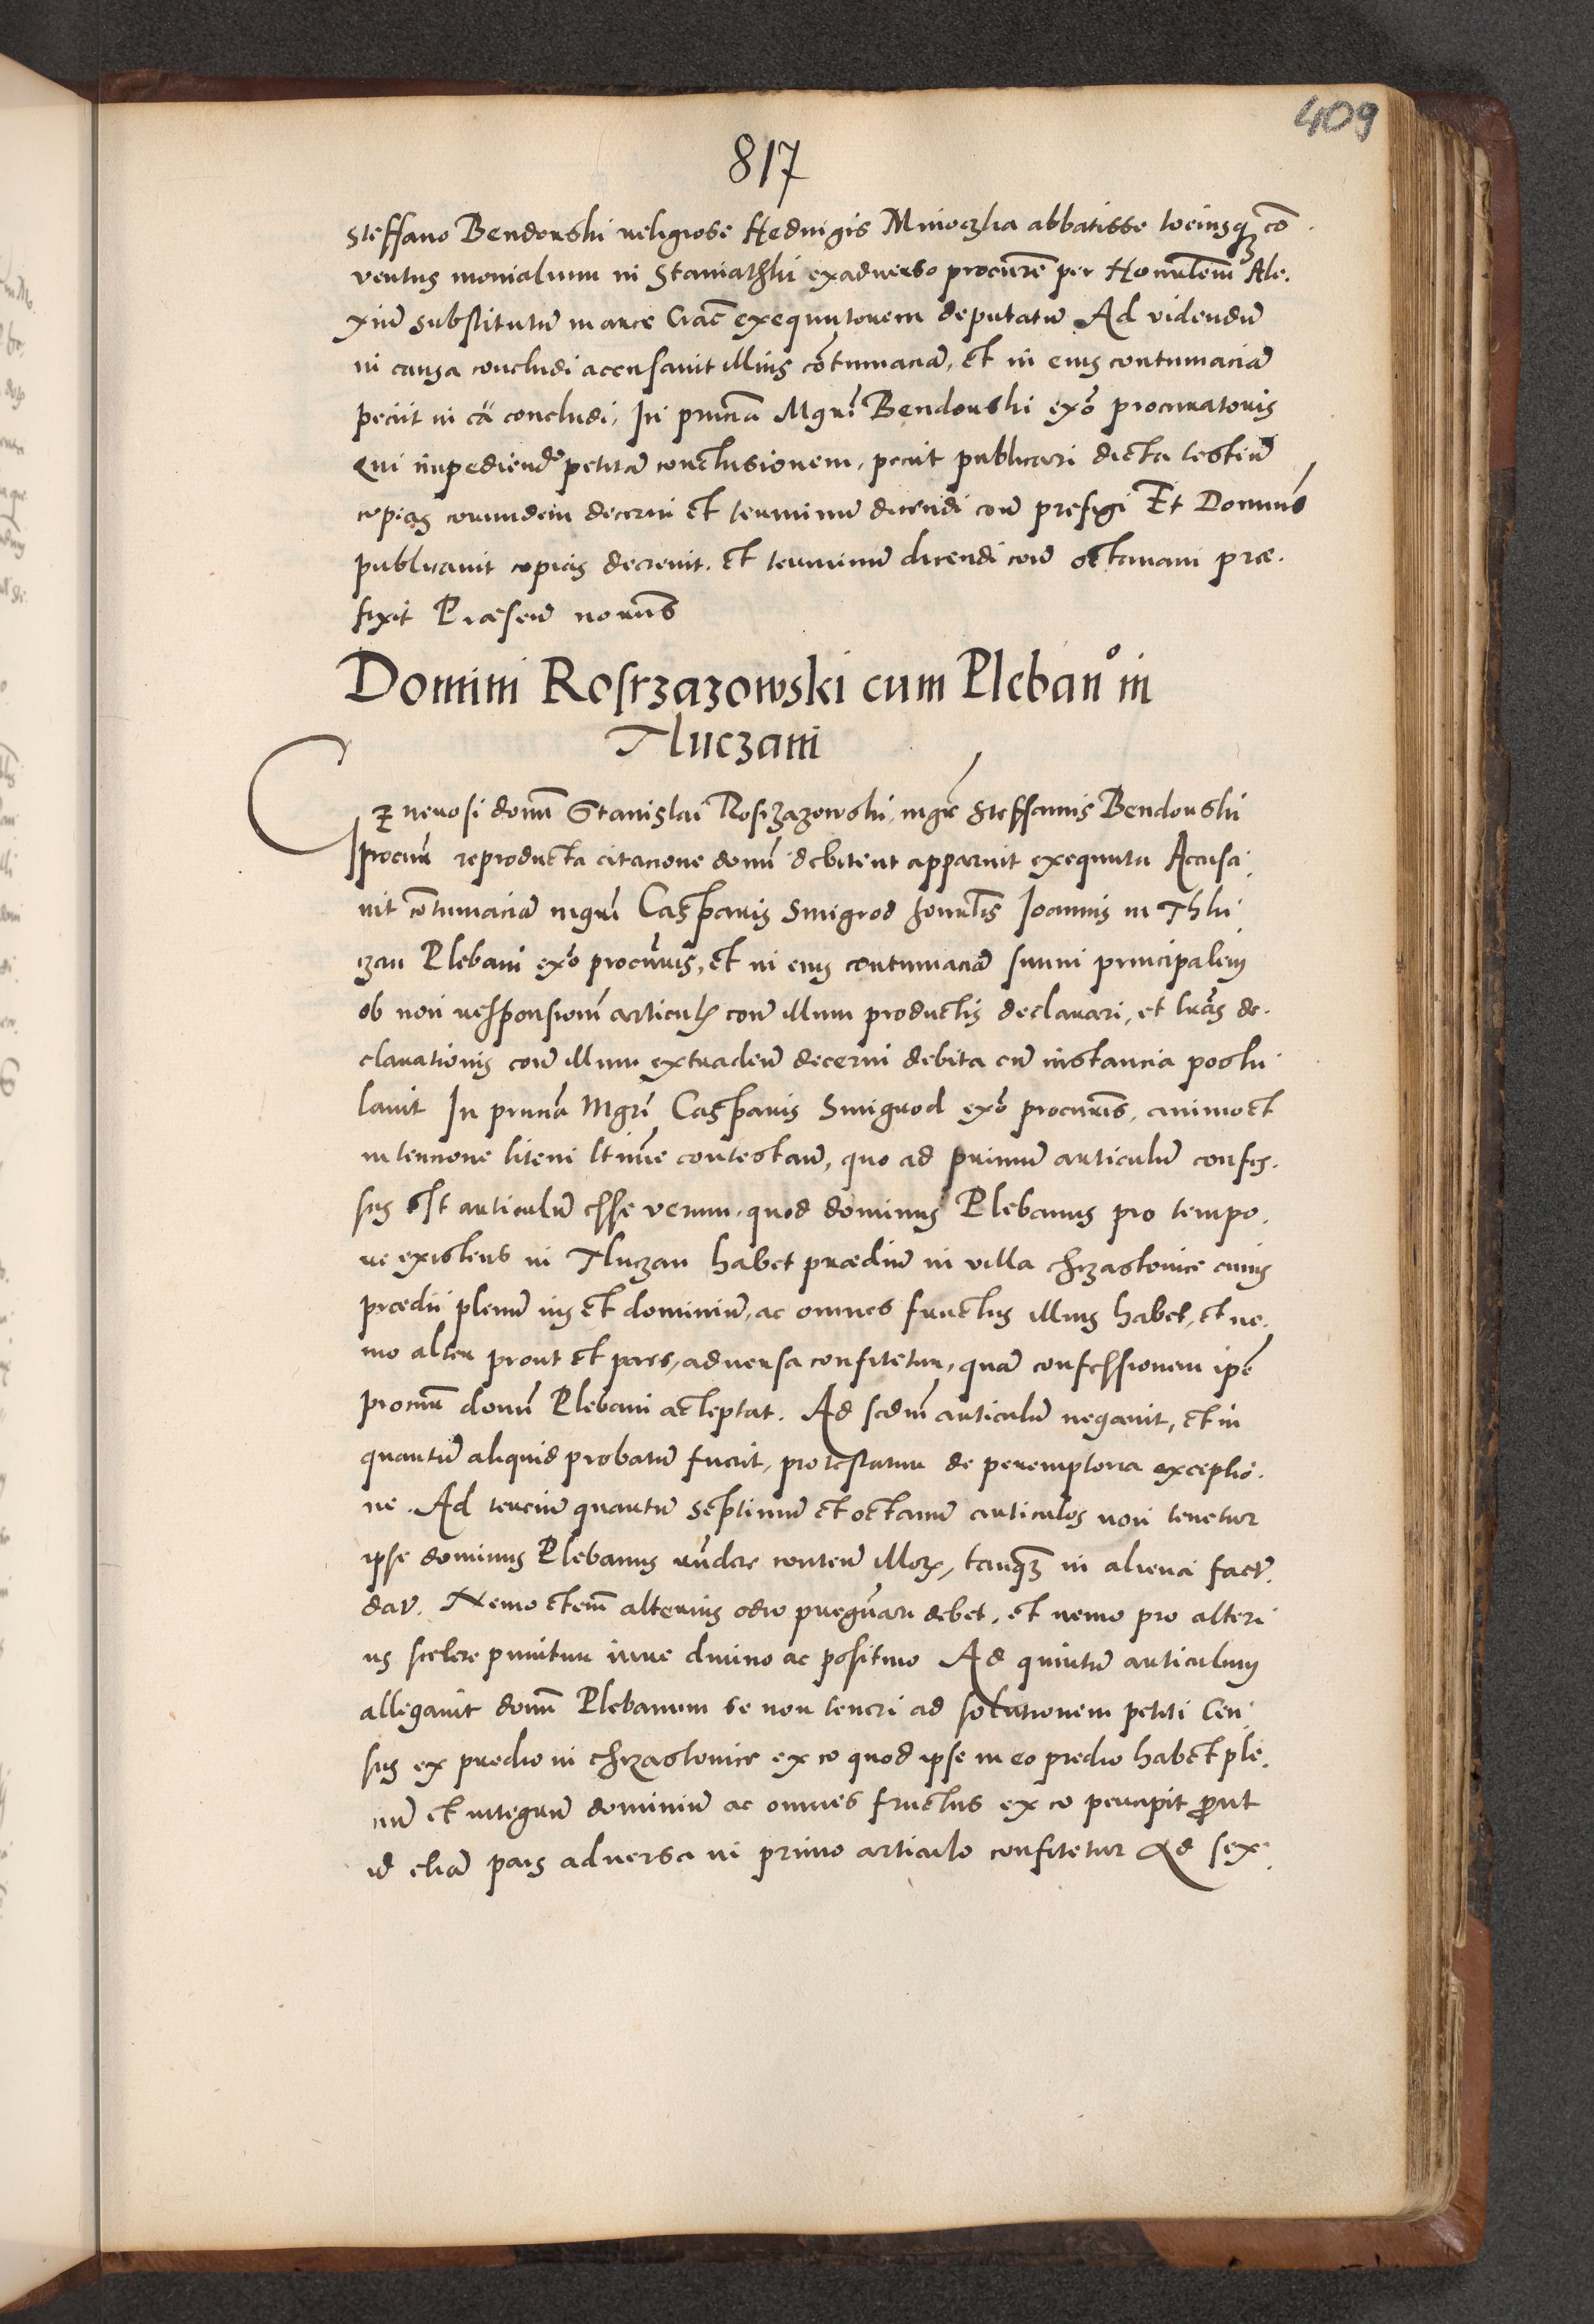 409
817
Steffano Bendorski religiose Hedvigis Mnioczka abbatisse tociusq3 cō
ventus monialium in Staniathki exadverso procurē per Honorlem Ale.
xium substitutū in arce Crac̄ exequutorem deputatū Ad videndū
in causa concludi accusavit illius cōtumaciā, et in eius contumaciā
peciit in cā concludi, In pñciā Mgri Bendorski exō procuratoris
qui impediendo petitā conclusionem, peciit publicari dicta testiū
copias eorundem decerni et terminum dicendi con̄ prefigi Et Dominus
publicavit copias decrevit. et terminum dicendi con̄ octavam præ.
fixit Præsen̄ nōriis
Domini Rosrzazowski cum Plebanº in
Tluczani
Generosi domī Stanislai Rosrzazowski, mgr̄ Steffanus Bendorski
procur̄ reproducta citacione domī debite ut apparuit exequuta Accusa
vit cōtumaciā mgri Casparis Smigrod honorlis Joannis in Thlu
czan Plebani exō procuris, et in eius contumaciā suum principalem
ob non responsionē articulis con̄ illum productis declarari, et lrās de.
clarationis con̄ illum extraden̄ decerni debita cū instancia postu
lavit In pñciā Mgri Casparis Smigrod exō procuris, animo et
intencione litem ltime contestan̄, quo ad primum articulū confes.
sus est articulū esse verum, quod dominus Plebanus pro tempo.
re existens in Tluczan habet prædiū in villa Chrzastovice cuius
prædii plenū ius et dominiū, ac omnes fructus illius habet, et ne.
mo alter prout et pars, adversa confitetur, quā confessionem ipē
procur̄ domī Plebani acceptat. Ad scdm̄ articulū negavit, et in
quantū aliquid probatū fuerit, protestatur de peremptoria exceptio.
ne. Ad terciū quartū septimum et octavū articulos non tenetur
ipse dominus Plebanus rn̄dere conten̄ illor, tanq3 in alieni fact.
dat. Nemo etenī alterius odio pregravari debet, et nemo pro alteri
us scelere punitur iure divino ac positivo Ad quintū articulum
allegavit domī Plebanum se non teneri ad solutionem petiti Cen
sus ex predio in Chrzastovice ex eo quod ipse in eo predio habet ple.
nū et integrū dominiū ac omnes fructus ex eo percipit prout
id etiā pars adversa in primo articulo confitetur Ad sex